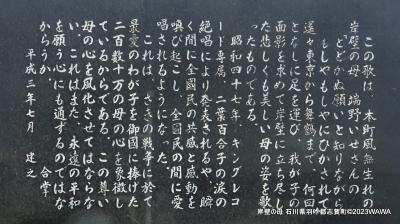 この歌は、本町風無生れの
岸壁の母 端野いせさんの
「とどかぬ願いと知りながら
もしやもしやに」と
遥々東京から舞鶴まで、何回
となしに足を運び、我が子の
面影を求めて岸壁に立ち尽し
た悲しくも美しい母の姿を歌
ったものである。
昭和四十七年、キングレコ
ード専属、二葉百合子の涙の
絶唱により発表されるや、瞬
く間に全国民の共感と感動を
喚び起こし、全国民の間に愛
唱されるようになった。
これは、さきの戦争に於て
最愛のわが子を御國に捧げた
二百数十万の母の心を象徴し
ているからである。この尊い
母の心を風化させてはならな
い。これはまた、永遠の平和
を願う心にも通ずるのではな
かろうか。 合掌
平成三年七月 建之
岸壁の母 石川県羽咋郡志賀町©2023WAWA